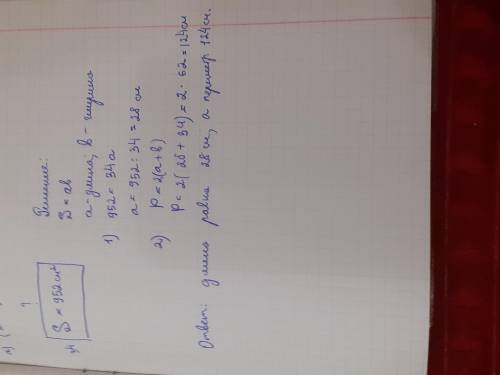 S = 952 см²
34
Решение:
S = ab
a - длина; b - ширина
1) 952 = 34a
a = 952 : 34 = 28 см
2) P = 2(a+b)
P = 2(28 + 34) = 2 · 62 = 124 см
Ответ: длина равна 28 см, а периметр 124 см.